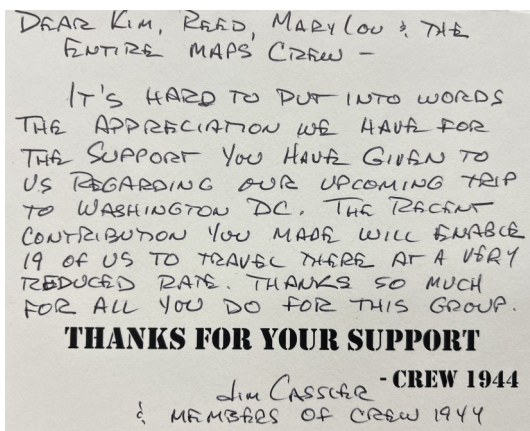 DEAR KIM, REED, MARYLOU & THE
ENTIRE MAPS CREW -
IT'S HARD TO PUT INTO WORDS
THE APPRECIATION WE HAVE FOR
THE SUPPORT YOU HAVE GIVEN TO
US REGARDING OUR UPCOMING TRIP
TO WASHINGTON DC. THE RECENT
CONTRIBUTION YOU MADE WILL ENABLE
19 OF US TO TRAVEL THERE AT A VERY
REDUCED RATE. THANKS SO MUCH
FOR ALL YOU DO FOR THIS GROUP.
THANKS FOR YOUR SUPPORT
- CREW 1944
JIM CASSLER
& MEMBERS OF CREW 1944